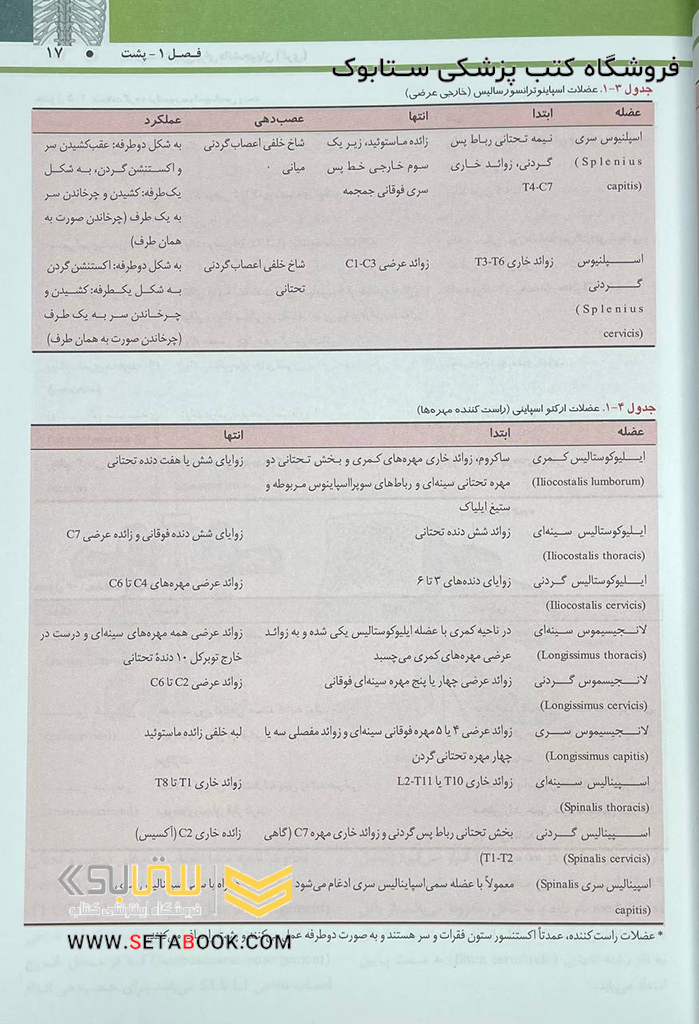 فصل ۱ - پشت • ۱۷
فروشگاه کتب پزشکی ستابوک
جدول ۳-۱. عضلات اسپاینوترانسورسالیس (خارجی عرضی)
عضله ابتدا انتها عصب‌دهی عملکرد
اسپلنیوس سری نیمه تحتانی رباط پس زائده ماستوئید، زیر یک شاخ خلفی اعصاب گردنی به شکل دوطرفه: عقب‌کشیدن سر
(Splenius گردنی، زوائد خاری سوم خارجی خط پس میانی و اکستنشن گردن، به شکل
capitis) T4-C7 سری فوقانی جمجمه یک‌طرفه: کشیدن و چرخاندن سر
به یک طرف (چرخاندن صورت به
همان طرف)
اسپلنیوس زوائد خاری T3-T6 زوائد عرضی C1-C3 شاخ خلفی اعصاب گردنی به شکل دوطرفه: اکستنشن گردن
گردنی تحتانی به شکل یکطرفه: کشیدن و
(Splenius چرخاندن سر به یک طرف
cervicis) (چرخاندن صورت به همان طرف)
جدول ۴-۱. عضلات ارکتو اسپاینی (راست کننده مهره‌ها)
عضله ابتدا انتها
ایلیوکوستالیس کمری ساکروم، زوائد خاری مهره‌های کمری و بخش تحتانی دو زوایای شش یا هفت دنده تحتانی
(Iliocostalis lumborum) مهره تحتانی سینه‌ای و رباط‌های سوپرااسپاینوس مربوطه و
ستیغ ایلیاک
ایلیوکوستالیس سینه‌ای زوائد شش دنده تحتانی زوایای شش دنده فوقانی و زائده عرضی C7
(Iliocostalis thoracis)
ایلیوکوستالیس گردنی زوایای دنده‌های ۳ تا ۶ زوائد عرضی مهره‌های C4 تا C6
(Iliocostalis cervicis)
لانجیسیموس سینه‌ای در ناحیه کمری با عضله ایلیوکوستالیس یکی شده و به زوائد زوائد عرضی همه مهره‌های سینه‌ای و درست در
(Longissimus thoracis) عرضی مهره‌های کمری می‌چسبد خارج توبرکل ۱۰ دندهٔ تحتانی
لانجیسموس گردنی زوائد عرضی چهار یا پنج مهره سینه‌ای فوقانی زوائد عرضی C2 تا C6
(Longissimus cervicis)
لانجیسیموس سری زوائد عرضی ۴ یا ۵ مهره فوقانی سینه‌ای و زوائد مفصلی سه یا لبه خلفی زائده ماستوئید
(Longissimus capitis) چهار مهره تحتانی گردن
اسپینالیس سینه‌ای زوائد خاری T10 یا L2-T11 زوائد خاری T1 تا T8
(Spinalis thoracis)
اسپینالیس گردنی بخش تحتانی رباط پس گردنی و زوائد خاری مهره C7 (گاهی زائده خاری C2 (آکسیس)
(Spinalis cervicis) T1-T2)
اسپینالیس سری (Spinalis معمولاً با عضله سمی‌اسپاینالیس سری ادغام می‌شود
capitis)
ستابوک
فروشگاه اینترنتی کتاب
* عضلات راست‌کننده، عمدتاً اکستنسور ستون فقرات و سر هستند و به صورت دوطرفه
WWW.SETABOOK.COM